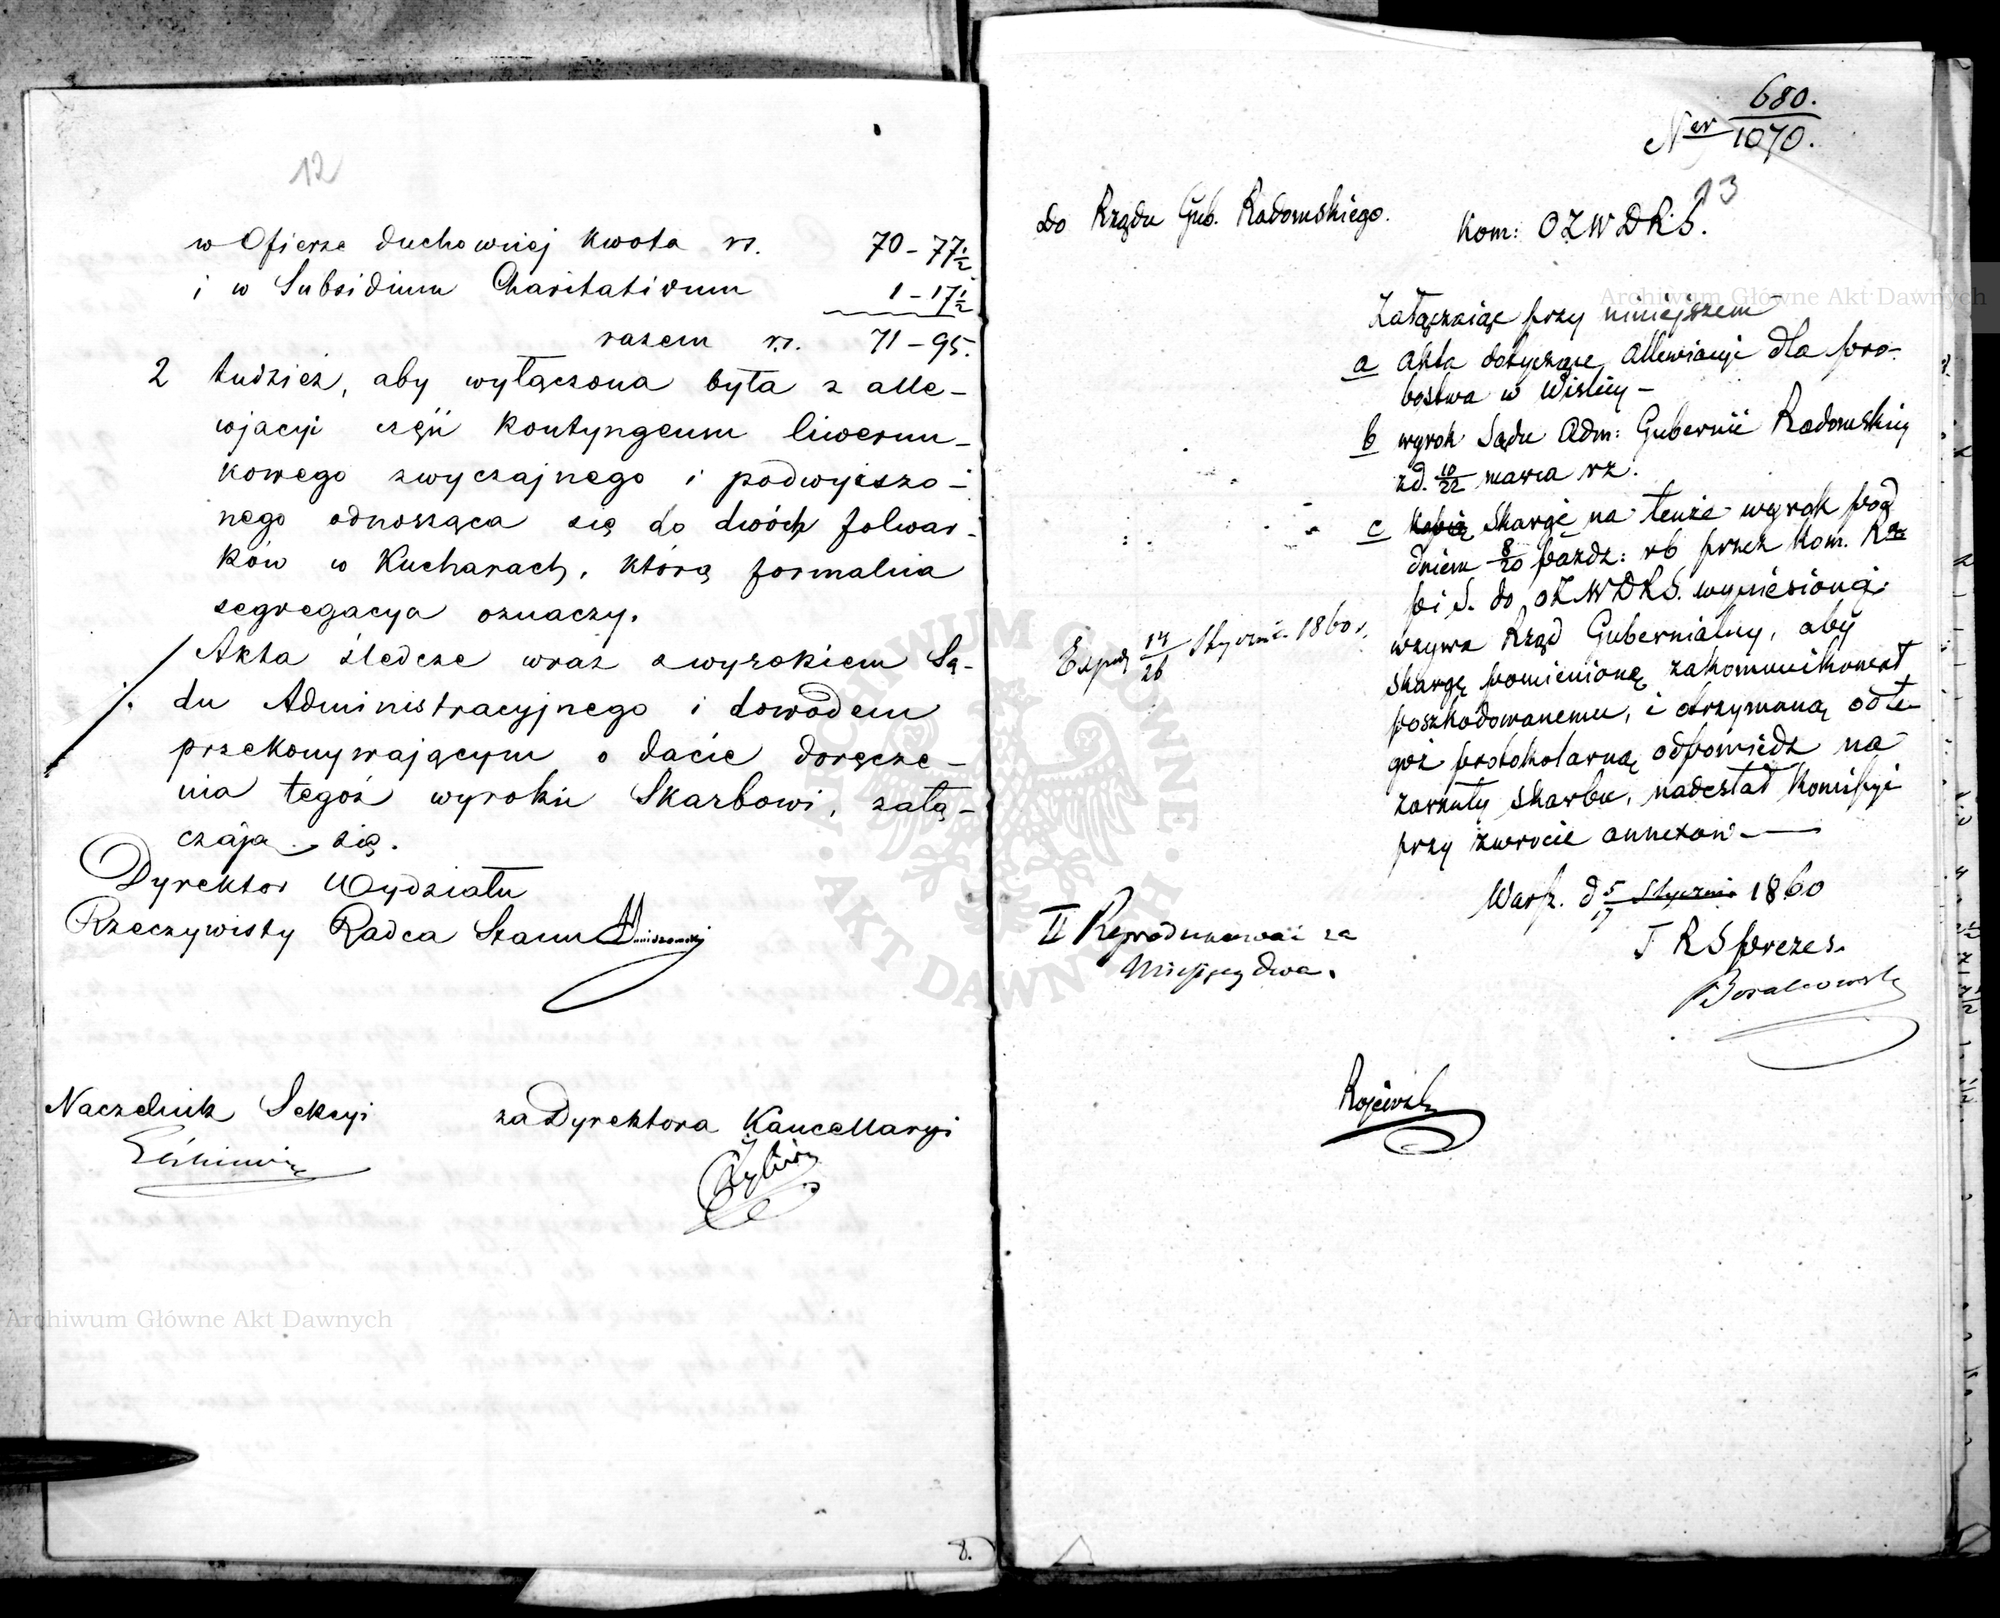 12
w Ofierze duchownej kwota rs. 70 - 77 1/2
i w Subsidium Charitativum 1 - 17 1/2
razem rs. 71 - 95.
2 tudzież, aby wyłączona była z alle-
wjacyi część kontyngensu liwerun-
kowego zwyczajnego i podwyższo-
nego odnosząca się do dwóch folwar-
ków w Kucharach, którą formalna
segregacya oznaczy.
Akta śledcze wraz z wyrokiem Są-
du Administracyjnego i dowodem
przekonywającym o dacie doręcze-
nia tegoż wyroku Skarbowi, załą-
czają się.
Dyrektor Wydziału
Rzeczywisty Radca Stanu
Naczelnik Sekcyi
za Dyrektora Kancellaryi
8.
Ner 680./1070.
13
Do Rządu Gub. Radomskiego.
Kom: OZWDKS.
Załączaiąc przy niniejszem
a akta dotyczące allewiacyi dla pro-
bostwa w Wiślicy -
b wyrok Sądu Adm: Gubernii Radomskiey
zd. 10/22 marca rz.
c kopię skargę na tenże wyrok pod
dniem 8/20 paźdz: rb przez Kom. Rz
pi S. do OZWDKS. wyniesioną;
wzywa Rząd Gubernialny, aby
skargę pomienionę zakomunikował
poszkodowanemu, i otrzymaną od te-
goż protokolarną odpowiedz na
zarzuty skarbu, nadesłał Komissyi
przy zwrocie annexów.
Exped 14/26 Stycznia 1860 r.
Warsz. d 5/17 Stycznia 1860
T R S prezes.
II Reprodukować za
Miesięcy dwa.
Archiwum Główne Akt Dawnych
Archiwum Główne Akt Dawnych
ARCHIWUM GŁÓWNE
AKT DAWNYCH